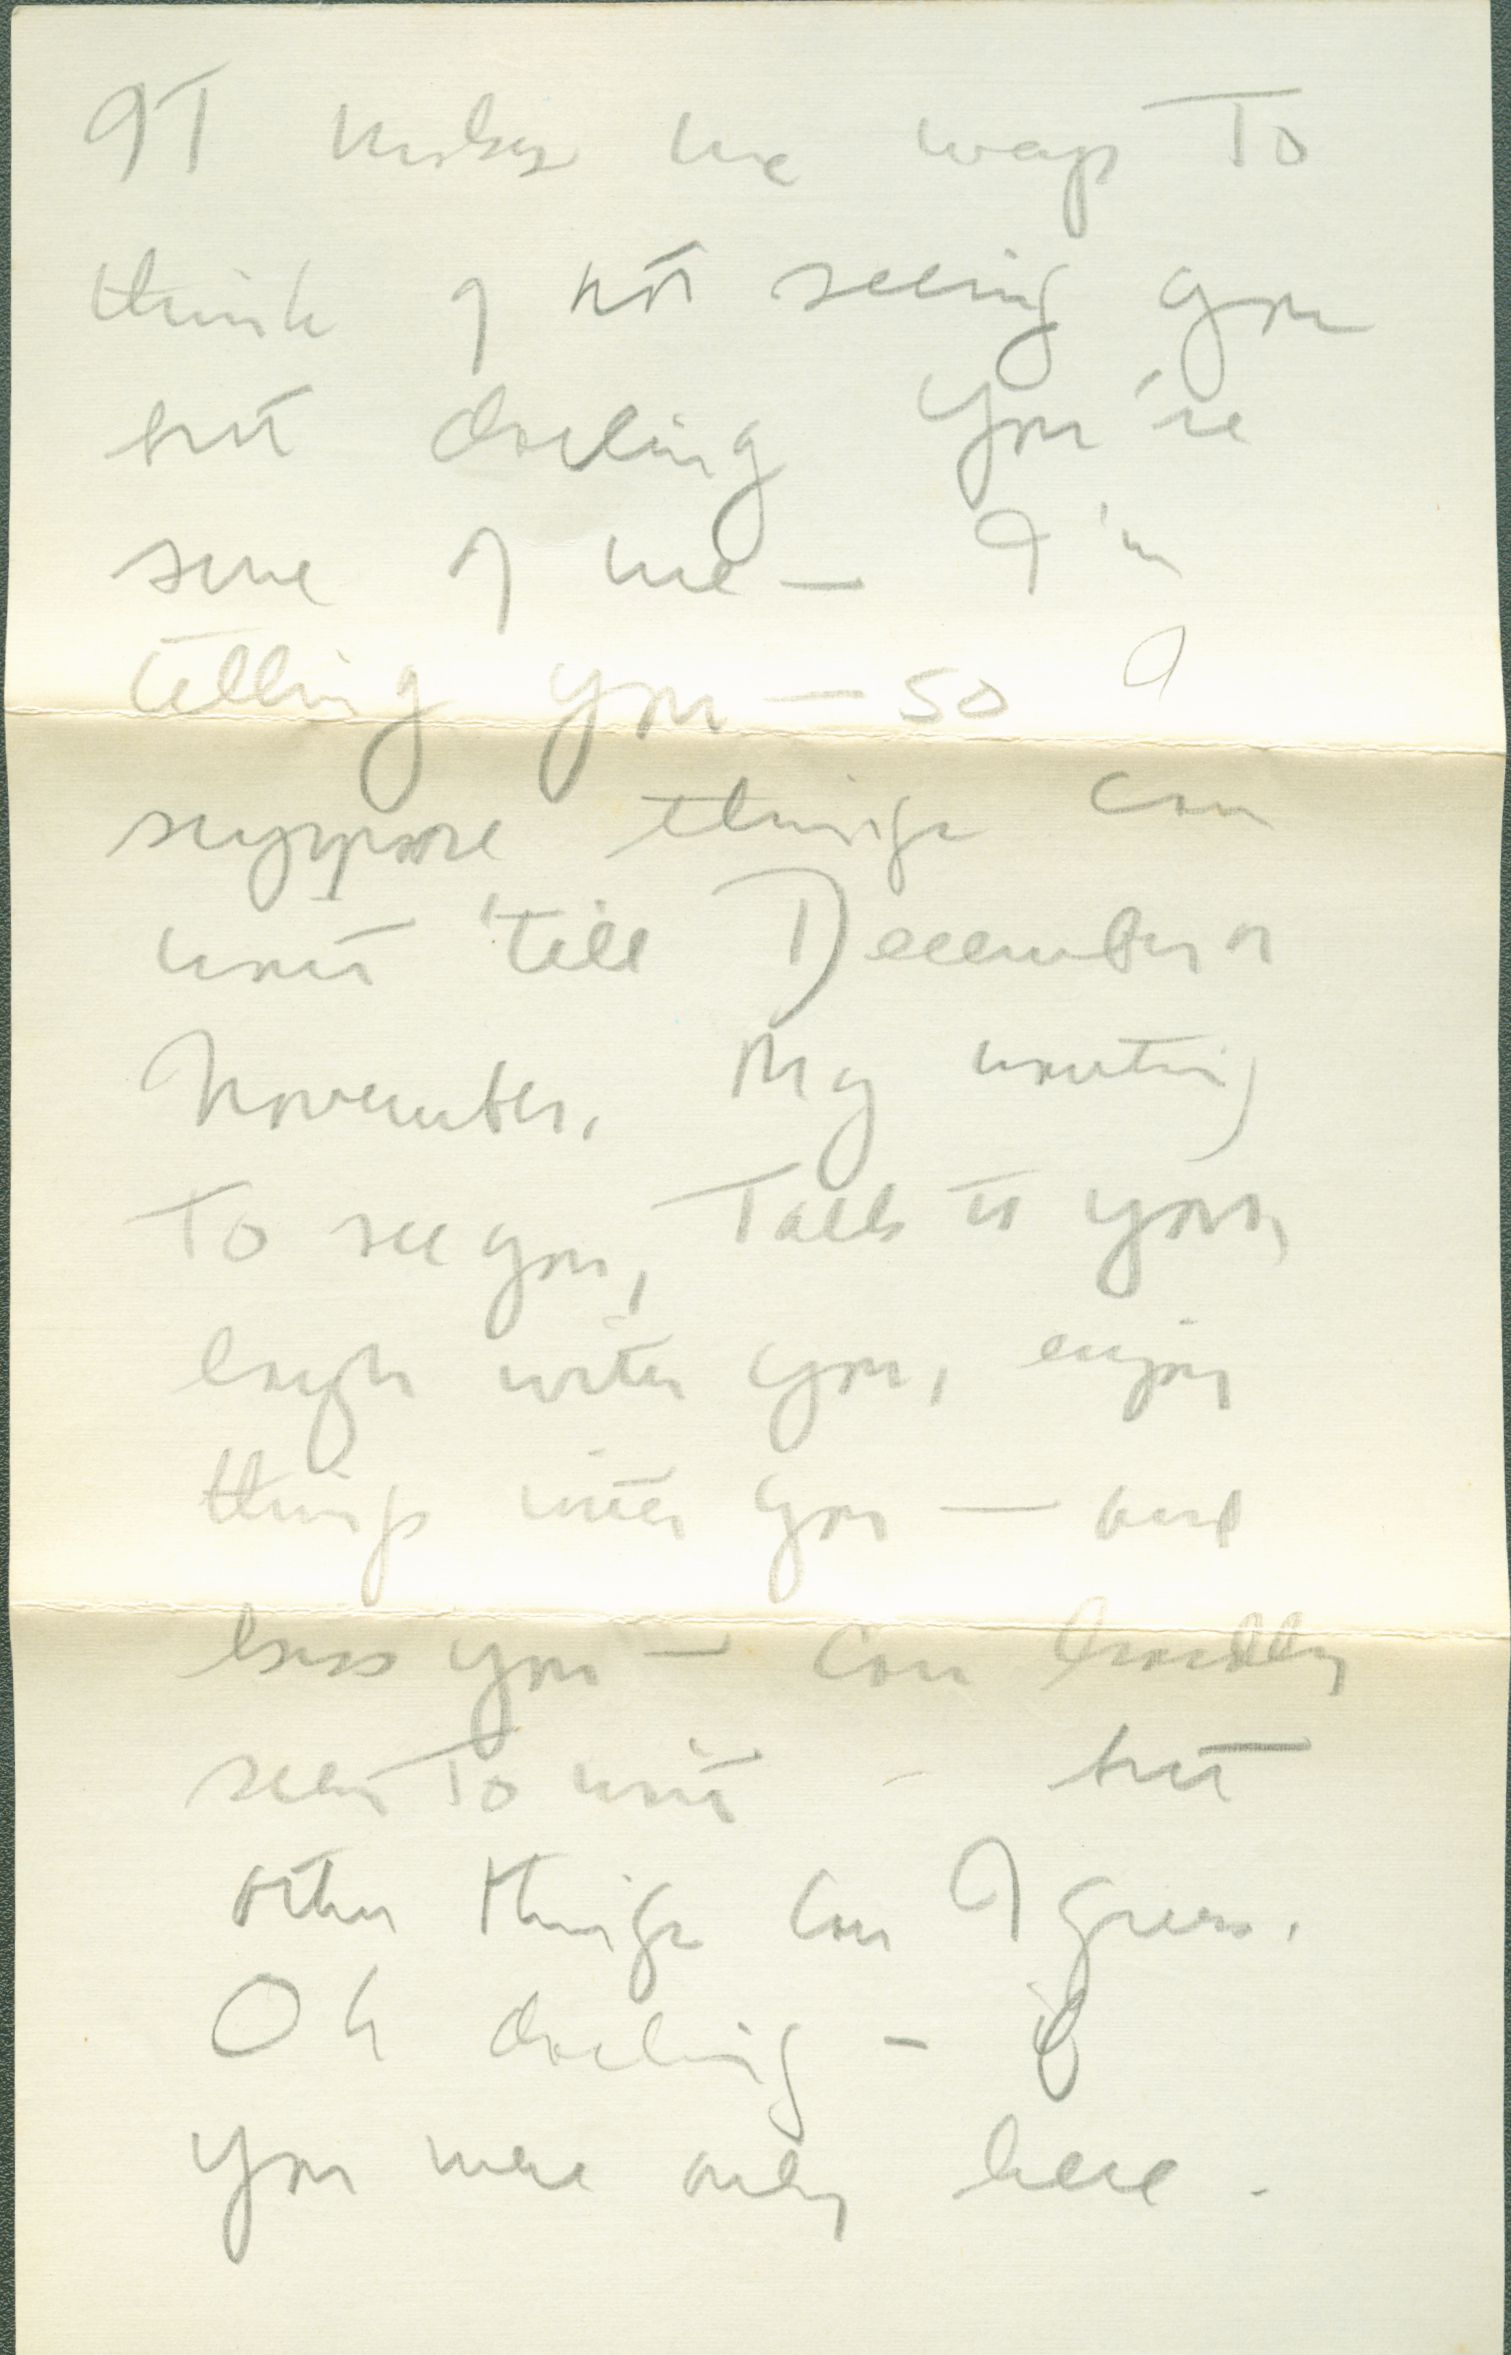 It makes me weep to
think of not seeing you
but darling you're
sure of me — I'm
telling you — so I
suppose things can
wait 'till December or
November. My wanting
to see you, talk to you,
laugh with you, enjoy
things with you — and
kiss you — can hardly
seem to wait — but
other things can I guess.
Oh darling — if
you were only here.